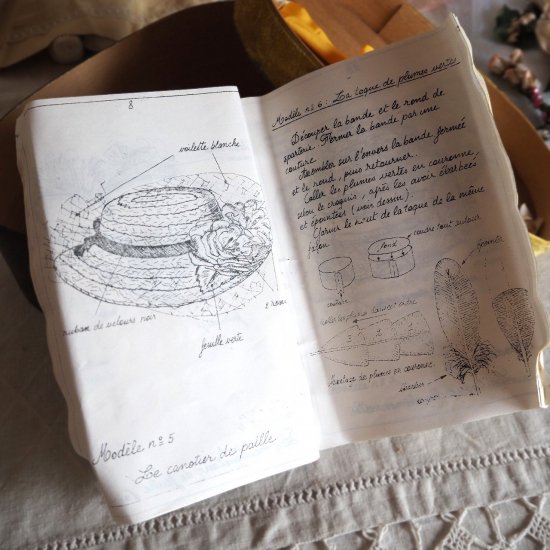 8
voilette blanche
ruban de velours noir
feuille verte
Modèle nº 5
Le canotier de paille
Modèle nº 6 : La toque de plumes vertes
Découper la bande et le rond de
sparterie. Fermer la bande par une
couture.
Assembler sur l'envers la bande fermée
et le rond, puis retourner.
Coller les plumes vertes en couronne,
selon le croquis, après les avoir ébarbées
et épointées (voir dessin).
Garnir le haut de la toque de la même
façon.
coudre tout autour
fond
couture
coller les plumes dans cet ordre
3
Montage des plumes en couronne.
ébarber